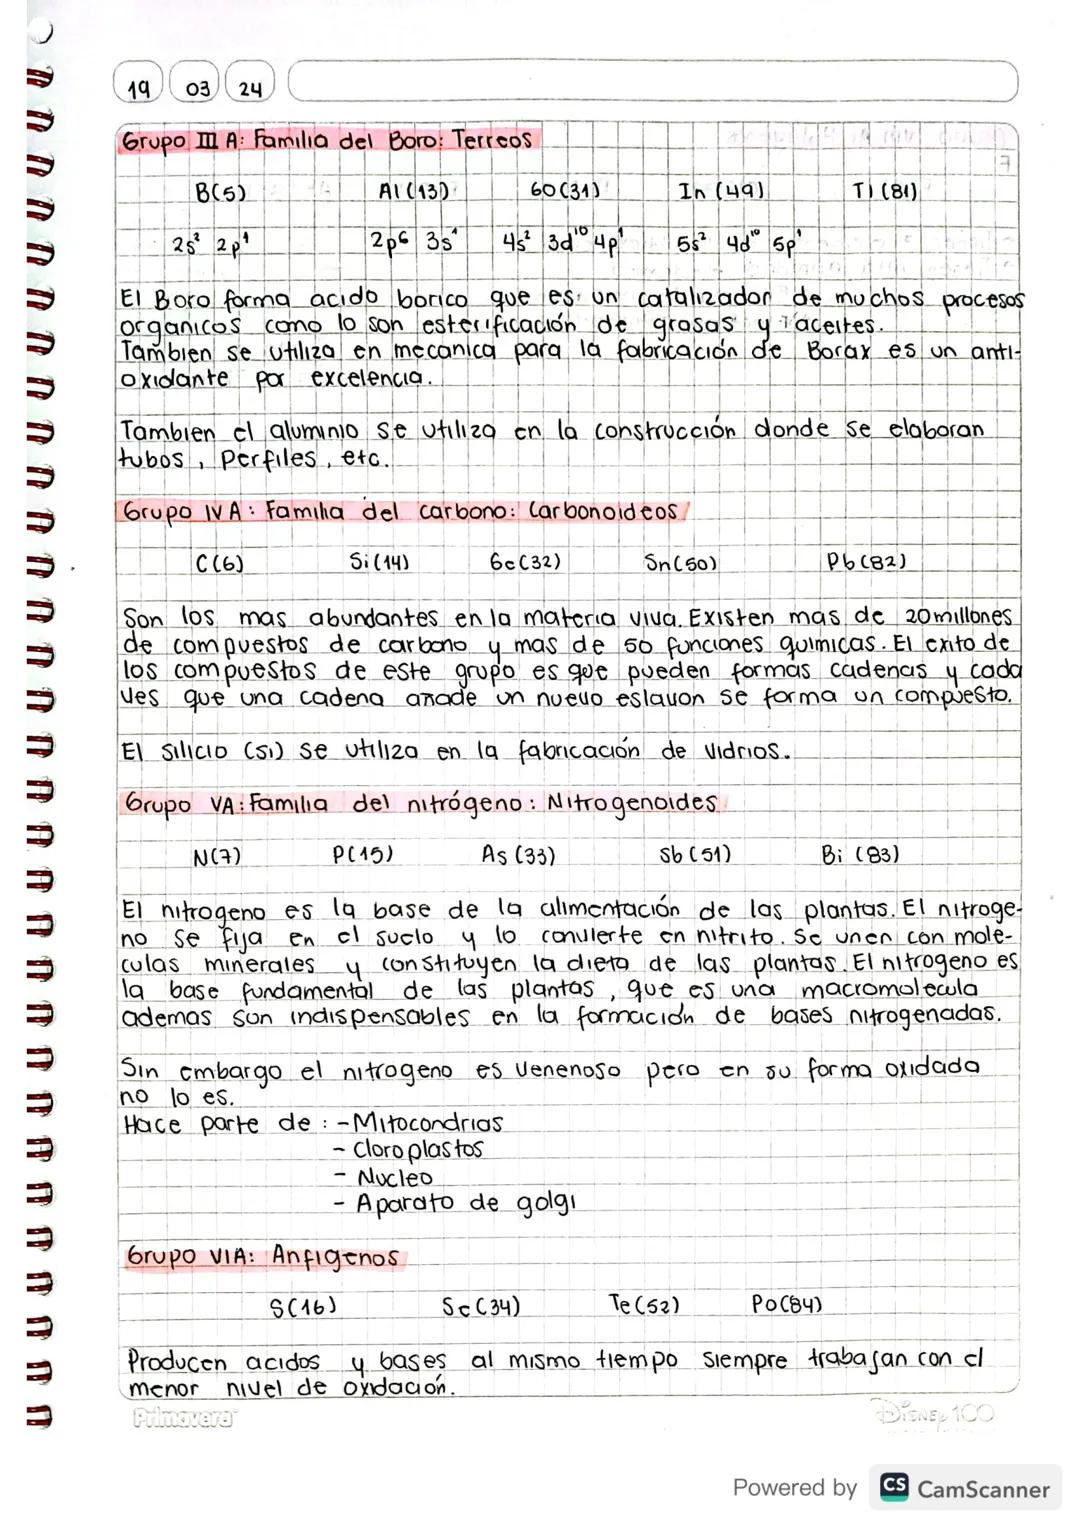 19 03 24
Grupo III A: Familia del Boro: Terreos
B(5) Al (13) Ga (31) In (49) Tl (81)
2s² 2p¹ 2p⁶ 3s¹ 4s² 3d¹⁰ 4p¹ 5s² 4d¹⁰ 5p¹
El Boro forma acido borico que es un catalizador de muchos procesos
organicos como lo son esterificación de grasas y aceites.
Tambien se utiliza en mecanica para la fabricación de Borax es un anti-
oxidante por excelencia.
Tambien el aluminio se utiliza en la construcción donde se elaboran
tubos, Perfiles, etc.
Grupo IV A: Familia del carbono: Carbonoideos
C(6) Si(14) Ge(32) Sn(50) Pb(82)
Son los mas abundantes en la materia viva. Existen mas de 20 millones
de compuestos de carbono y mas de 50 funciones quimicas. El exito de
los compuestos de este grupo es que pueden formas cadenas y cada
ves que una cadena añade un nuevo eslavon se forma un compuesto.
El silicio (si) se utiliza en la fabricación de vidrios.
Grupo VA: Familia del nitrógeno: Nitrogenoides
N(7) P(15) As (33) Sb (51) Bi (83)
El nitrogeno es la base de la alimentación de las plantas. El nitroge-
no se fija en el suelo y lo convierte en nitrito. Se unen con mole-
culas minerales y constituyen la dieta de las plantas. El nitrogeno es
la base fundamental de las plantas, que es una macromolecula
ademas son indispensables en la formación de bases nitrogenadas.
Sin embargo el nitrogeno es venenoso pero en su forma oxidada
no lo es.
Hace parte de: - Mitocondrias
- Cloroplastos
- Nucleo
- Aparato de golgi
Grupo VIA: Anfigenos
S(16) Se (34) Te (52) Po(84)
Producen acidos y bases al mismo tiempo siempre trabajan con el
menor nivel de oxidación.
Primavera Disney 100
Powered by CS CamScanner